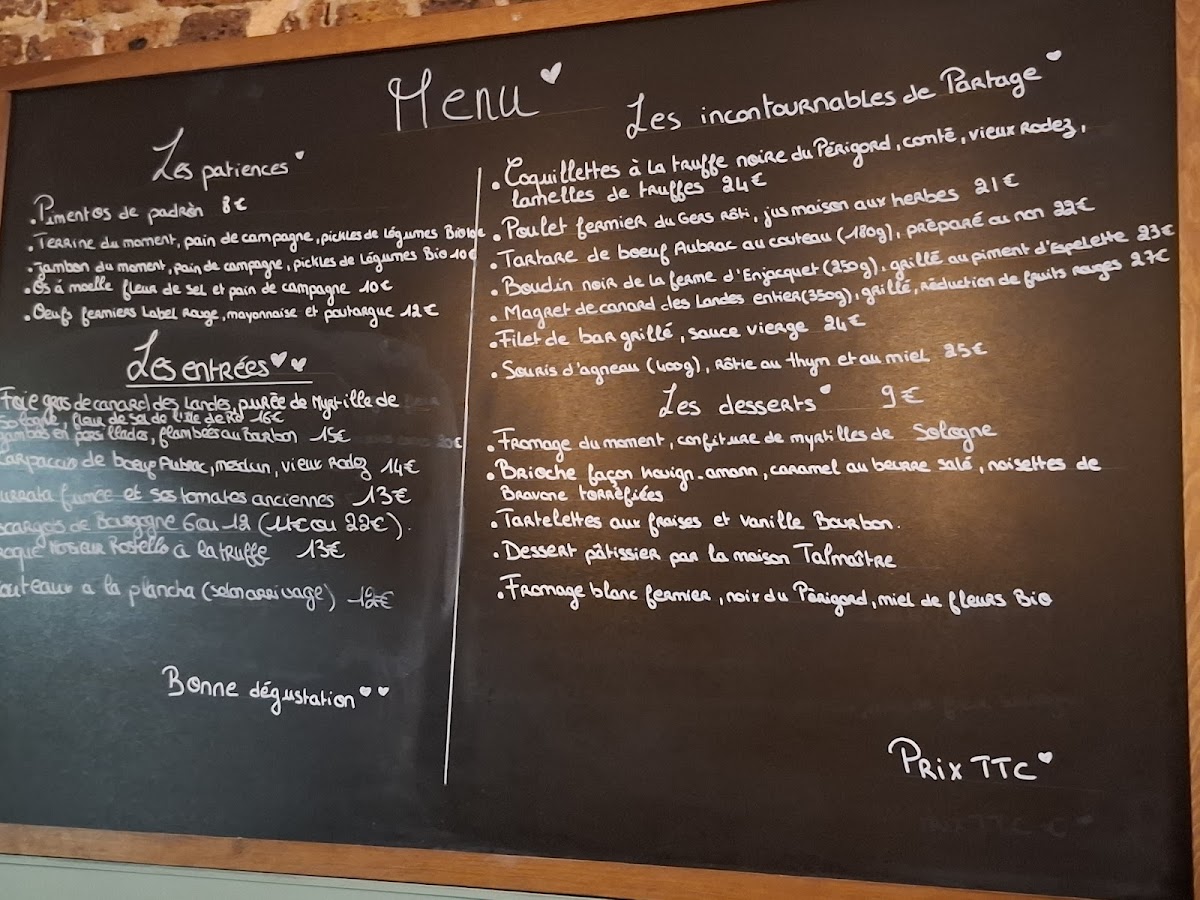 Menu
Les patiences
.Pimentos de padròn 8€
.Terrine du moment, pain de campagne, pickles de légumes Bio 10€
.Jambon du moment, pain de campagne, pickles de légumes Bio 10€
.Os à moelle fleur de sel et pain de campagne 10€
.Oeufs fermiers Label Rouge, mayonnaise et poutargue 12€
Les entrées
Foie gras de canard des Landes, purée de Myrtille de
Sologne, fleur de sel de l'île de Ré 16€
gambas en persillades, flambées au Bourbon 15€
carpaccio de boeuf Aubrac, mesclun, vieux Rodez 14€
urrata fumée et ses tomates anciennes 13€
scargots de Bourgogne 6 ou 12 (11€ ou 22€).
roque Monsieur Rostello à la truffe 13€
outeaux a la plancha (selon arrivage) 12€
Bonne dégustation
Les incontournables de Partage
.Coquillettes à la truffe noire du Périgord, comté, vieux Rodez,
lamelles de truffes 24€
.Poulet fermier du Gers rôti, jus maison aux herbes 21€
.Tartare de boeuf Aubrac au couteau (180g), préparé ou non 22€
.Boudin noir de la ferme d'Enjacquet (250g), grillé au piment d'Espelette 23€
.Magret de canard des Landes entier (350g), grillé, réduction de fruits rouges 27€
.Filet de bar grillé, sauce vierge 24€
.Souris d'agneau (400g), rôtie au thym et au miel 25€
Les desserts 9€
.Fromage du moment, confiture de myrtilles de Sologne
.Brioche façon kouign-amann, caramel au beurre salé, noisettes de
Bravone torréfiées
.Tartelettes aux fraises et vanille Bourbon.
.Dessert pâtissier par la maison Talmaître
.Fromage blanc fermier, noix du Périgord, miel de fleurs Bio
Prix TTC